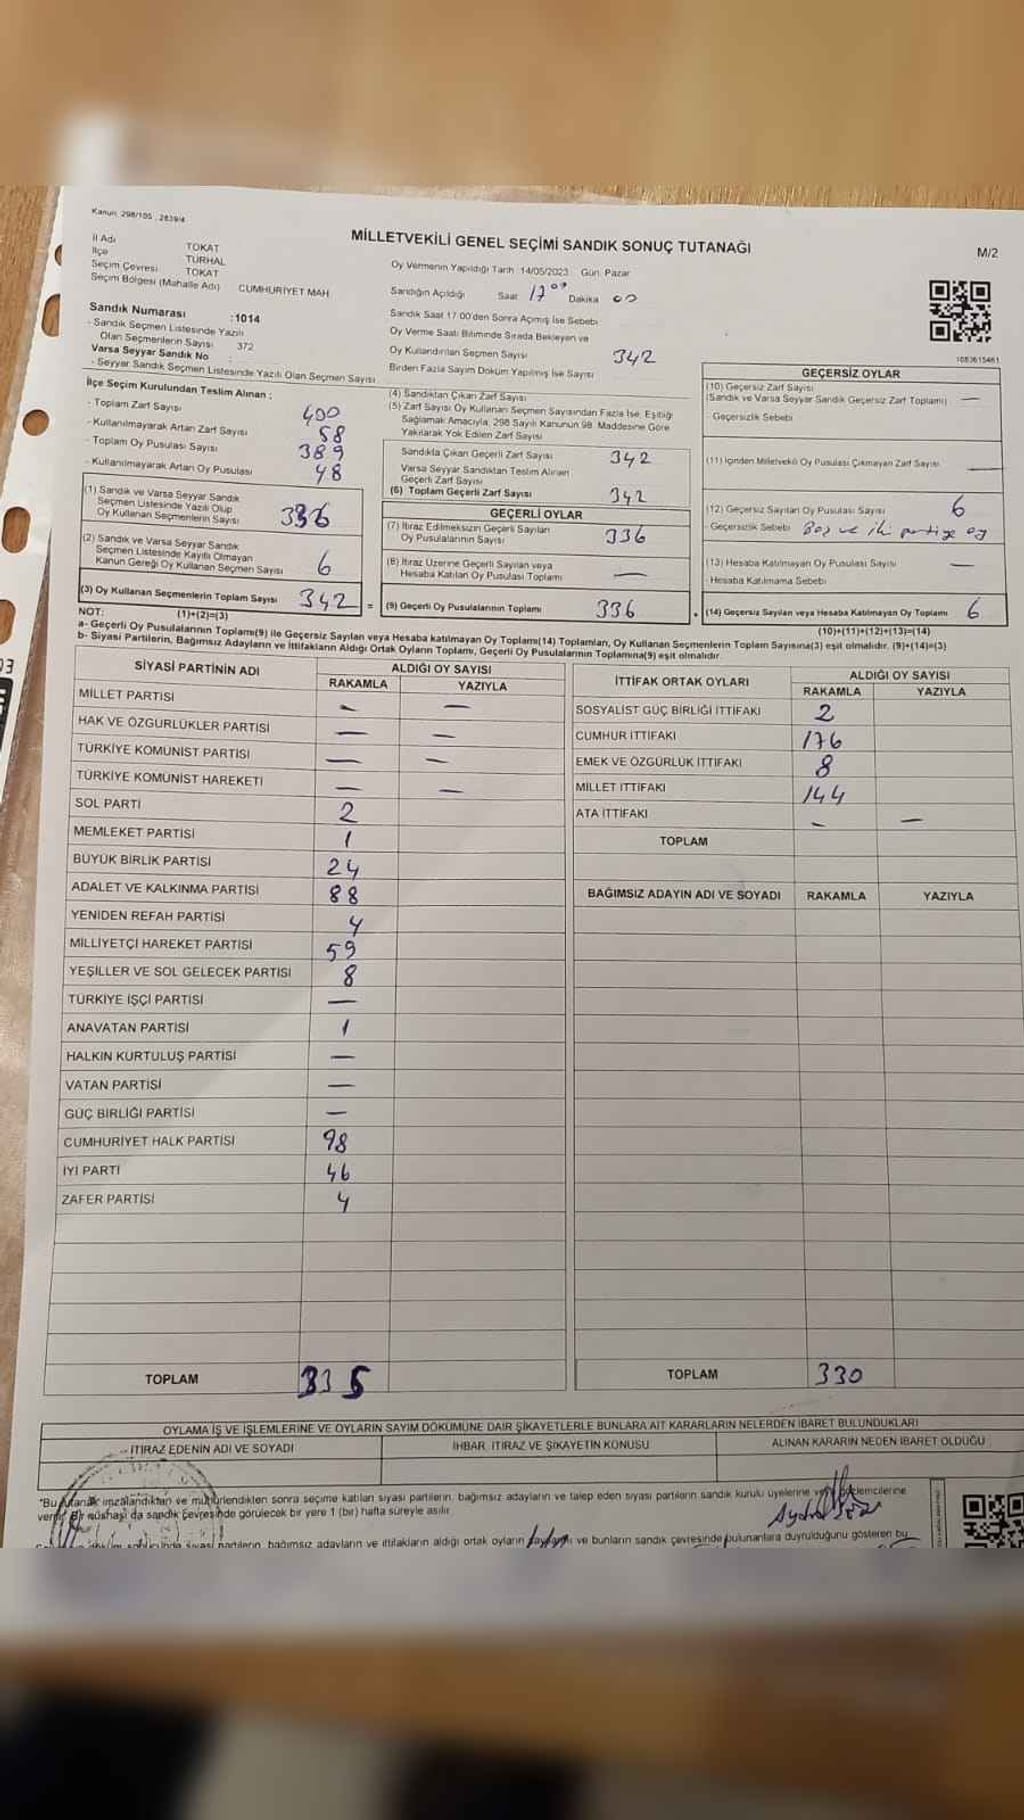 Kanun: 298/105 , 2839/4
MİLLETVEKİLİ GENEL SEÇİMİ SANDIK SONUÇ TUTANAĞI
M/2
İl Adı TOKAT
İlçe TURHAL
Seçim Çevresi TOKAT
Seçim Bölgesi (Mahalle Adı) CUMHURİYET MAH
Oy Vermenin Yapıldığı Tarih :14/05/2023 Gün: Pazar
Sandığın Açıldığı Saat 17 00 Dakika 00
Sandık Saat 17:00'den Sonra Açmış İse Sebebi
Oy Verme Saati Bitiminde Sırada Bekleyen ve
Oy Kullandırılan Seçmen Sayısı 342
Birden Fazla Sayım Döküm Yapılmış İse Sayısı
Sandık Numarası :1014
- Sandık Seçmen Listesinde Yazılı
Olan Seçmenlerin Sayısı 372
Varsa Seyyar Sandık No :
- Seyyar Sandık Seçmen Listesinde Yazılı Olan Seçmen Sayısı
İlçe Seçim Kurulundan Teslim Alınan :
- Toplam Zarf Sayısı 400
- Kullanılmayarak Artan Zarf Sayısı 58
- Toplam Oy Pusulası Sayısı 389
- Kullanılmayarak Artan Oy Pusulası 48
(1) Sandık ve Varsa Seyyar Sandık
Seçmen Listesinde Yazılı Olup
Oy Kullanan Seçmenlerin Sayısı 336
(2) Sandık ve Varsa Seyyar Sandık
Seçmen Listesinde Kayıtlı Olmayan
Kanun Gereği Oy Kullanan Seçmen Sayısı 6
(3) Oy Kullanan Seçmenlerin Toplam Sayısı 342 =
(1)+(2)=(3)
(4) Sandıktan Çıkan Zarf Sayısı
(5) Zarf Sayısı Oy Kullanan Seçmen Sayısından Fazla İse, Eşitliği
Sağlamak Amacıyla, 298 Sayılı Kanunun 98. Maddesine Göre
Yakılarak Yok Edilen Zarf Sayısı
Sandıkta Çıkan Geçerli Zarf Sayısı 342
Varsa Seyyar Sandıktan Teslim Alınan
Geçerli Zarf Sayısı
(6) Toplam Geçerli Zarf Sayısı 342
GEÇERLİ OYLAR
(7) İtiraz Edilmeksizin Geçerli Sayılan
Oy Pusulalarının Sayısı 336
(8) İtiraz Üzerine Geçerli Sayılan veya
Hesaba Katılan Oy Pusulası Toplamı —
(9) Geçerli Oy Pusulalarının Toplamı 336
1083615461
GEÇERSİZ OYLAR
(10) Geçersiz Zarf Sayısı
(Sandık ve Varsa Seyyar Sandık Geçersiz Zarf Toplamı) —
Geçersizlik Sebebi
(11) İçinden Milletvekili Oy Pusulası Çıkmayan Zarf Sayısı —
(12) Geçersiz Sayılan Oy Pusulası Sayısı 6
- Geçersizlik Sebebi Boş ve iki partiye oy
(13) Hesaba Katılmayan Oy Pusulası Sayısı —
- Hesaba Katılmama Sebebi
(14) Geçersiz Sayılan veya Hesaba Katılmayan Oy Toplamı 6
(10)+(11)+(12)+(13)=(14)
NOT:
a- Geçerli Oy Pusulalarının Toplamı(9) ile Geçersiz Sayılan veya Hesaba katılmayan Oy Toplamı(14) Toplamları, Oy Kullanan Seçmenlerin Toplam Sayısına(3) eşit olmalıdır. (9)+(14)=(3)
b- Siyasi Partilerin, Bağımsız Adayların ve İttifakların Aldığı Ortak Oyların Toplamı, Geçerli Oy Pusulalarının Toplamına(9) eşit olmalıdır.
SİYASİ PARTİNİN ADI ALDIĞI OY SAYISI
RAKAMLA YAZIYLA
MİLLET PARTİSİ — —
HAK VE ÖZGÜRLÜKLER PARTİSİ — —
TÜRKİYE KOMÜNİST PARTİSİ — —
TÜRKİYE KOMÜNİST HAREKETİ — —
SOL PARTİ 2
MEMLEKET PARTİSİ 1
BÜYÜK BİRLİK PARTİSİ 24
ADALET VE KALKINMA PARTİSİ 88
YENİDEN REFAH PARTİSİ 4
MİLLİYETÇİ HAREKET PARTİSİ 59
YEŞİLLER VE SOL GELECEK PARTİSİ 8
TÜRKİYE İŞÇİ PARTİSİ —
ANAVATAN PARTİSİ 1
HALKIN KURTULUŞ PARTİSİ —
VATAN PARTİSİ —
GÜÇ BİRLİĞİ PARTİSİ —
CUMHURİYET HALK PARTİSİ 98
İYİ PARTİ 46
ZAFER PARTİSİ 4
TOPLAM 335
İTTİFAK ORTAK OYLARI ALDIĞI OY SAYISI
RAKAMLA YAZIYLA
SOSYALİST GÜÇ BİRLİĞİ İTTİFAKI 2
CUMHUR İTTİFAKI 176
EMEK VE ÖZGÜRLÜK İTTİFAKI 8
MİLLET İTTİFAKI 144
ATA İTTİFAKI — —
TOPLAM
BAĞIMSIZ ADAYIN ADI VE SOYADI RAKAMLA YAZIYLA
TOPLAM 330
OYLAMA İŞ VE İŞLEMLERİNE VE OYLARIN SAYIM DÖKÜMÜNE DAİR ŞİKAYETLERLE BUNLARA AİT KARARLARIN NELERDEN İBARET BULUNDUKLARI
İTİRAZ EDENİN ADI VE SOYADI İHBAR, İTİRAZ VE ŞİKAYETİN KONUSU ALINAN KARARIN NEDEN İBARET OLDUĞU
"Bu tutanak imzalandıktan ve mühürlendikten sonra seçime katılan siyasi partilerin, bağımsız adayların ve talep eden siyasi partilerin sandık kurulu üyelerine
Bir nüshası da sandık çevresinde görülecek bir yere 1 (bir) hafta süreyle asılır
siyasi partilerin, bağımsız adayların ve ittifakların aldığı ortak oyların ve bunların sandık çevresinde bulunanlara duyrulduğunu gösteren bu